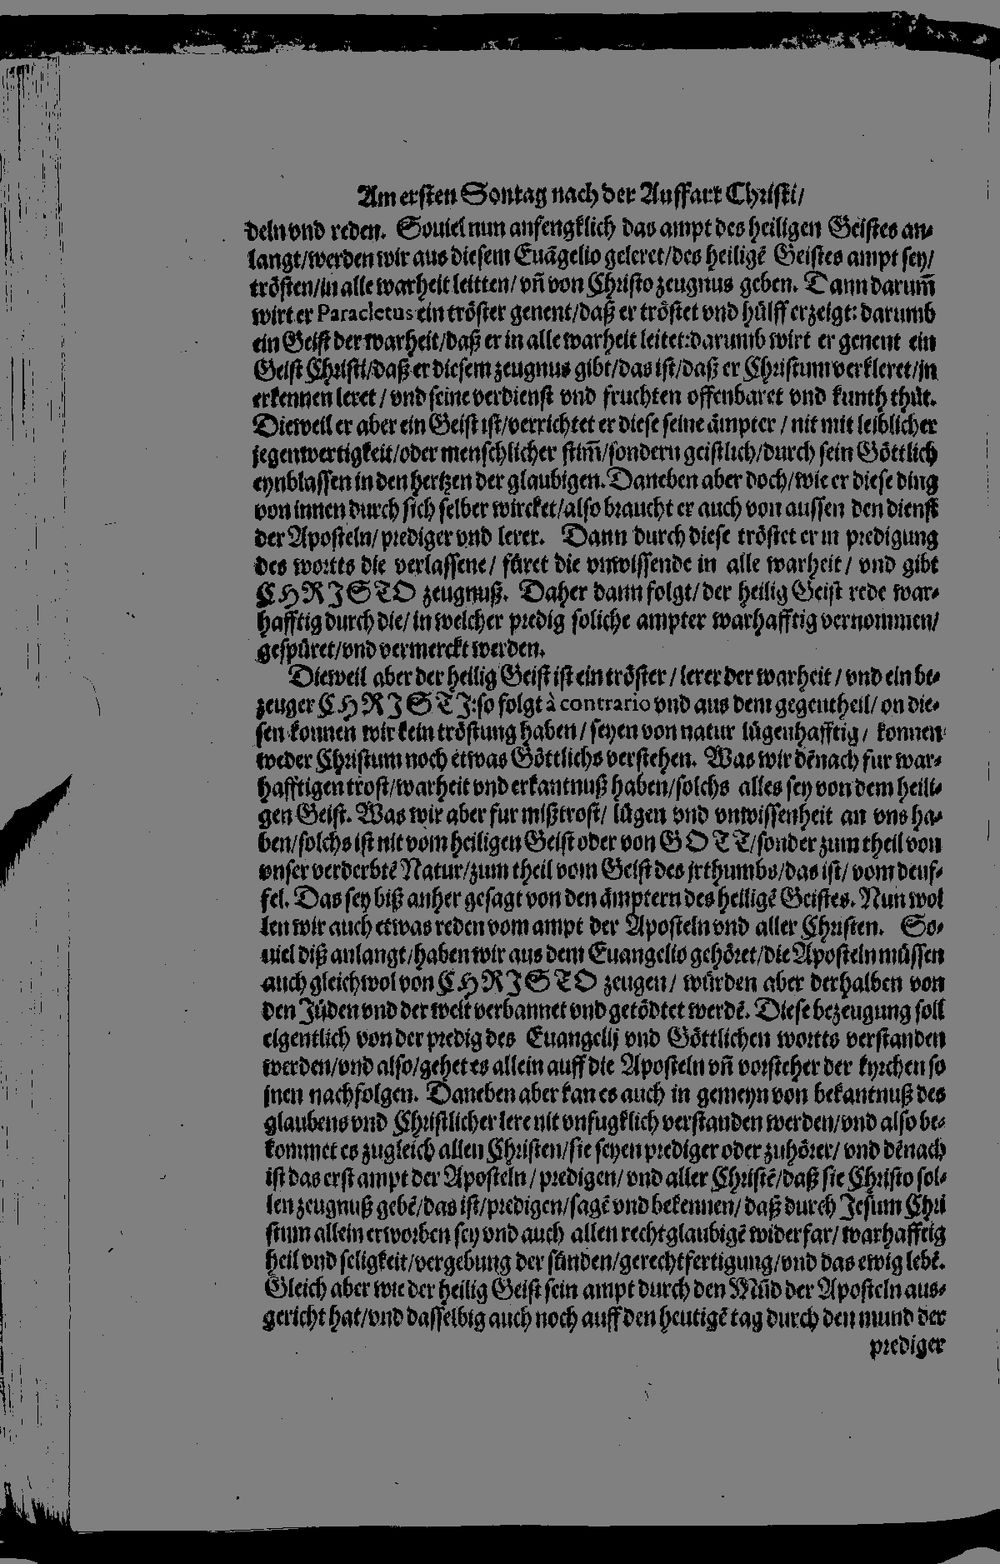 Am ersten Sontag nach der Auffart Christi/
deln vnd reden. Souiel nun anfengklich das ampt des heiligen Geistes an-
langt/werden wir aus diesem Euãgelio geleret/des heiligẽ Geistes ampt sey/
trösten/in alle warheit leitten/ vñ von Christo zeugnus geben. Dann darum̃
wirt er Paracletus ein tröster genent/daß er tröstet vnd hülff erzeigt: darumb
ein Geist der warheit/daß er in alle warheit leitet:darumb wirt er genent ein
Geist Christi/daß er diesem zeugnus gibt/das ist/daß er Christum verkleret/jn
erkennen leret / vnd seine verdienst vnd fruchten offenbaret vnd kunth thůt.
Dieweil er aber ein Geist ist/verrichtet er diese seine ämpter / nit mit leiblicher
jegenwertigkeit/oder menschlicher stim̃/sondern geistlich/durch sein Göttlich
eynblassen in den hertzen der glaubigen. Daneben aber doch/wie er diese ding
von innen durch sich selber wircket/also braucht er auch von aussen den dienst
der Aposteln/ prediger vnd lerer. Dann durch diese tröstet er in predigung
des wortts die verlassene/ füret die vnwissende in alle warheit/ vnd gibt
CHRISTO zeugnuß. Daher dann folgt/ der heilig Geist rede war-
hafftig durch die/ in welcher predig soliche ampter warhafftig vernommen/
gespüret/vnd vermerckt werden.
Dieweil aber der heilig Geist ist ein tröster / lerer der warheit / vnd ein be-
zeuger CHRISTI:so folgt à contrario vnd aus dem gegentheil/ on die-
sen konnen wir kein tröstung haben / seyen von natur lügenhafftig / konnen
weder Christum noch etwas Göttlichs verstehen. Was wir dẽnach fur war-
hafftigen trost/warheit vnd erkantnuß haben/solchs alles sey von dem heili-
gen Geist. Was wir aber fur mißtrost/ lügen vnd vnwissenheit an vns ha-
ben/solchs ist nit vom heiligen Geist oder von GOTT/sonder zum theil von
vnser verderbtẽ Natur/zum theil vom Geist des jrthumbs/das ist/ vom deuf-
fel. Das sey biß anher gesagt von den ämptern des heiligẽ Geistes. Nun wol
len wir auch etwas reden vom ampt der Aposteln vnd aller Christen. So-
uiel diß anlangt/haben wir aus dem Euangelio gehöret/die Aposteln müssen
auch gleichwol von CHRISTO zeugen/ würden aber derhalben von
den Jüden vnd der welt verbannet vnd getödtet werdẽ. Diese bezeugung soll
eigentlich von der predig des Euangelij vnd Göttlichen wortts verstanden
werden/vnd also/gehet es allein auff die Aposteln vñ vorsteher der kyrchen so
jnen nachfolgen. Daneben aber kan es auch in gemeyn von bekantnuß des
glaubens vnd Christlicher lere nit vnfugklich verstanden werden/vnd also be-
kommet es zugleich allen Christen/sie seyen prediger oder zuhörer/ vnd dẽnach
ist das erst ampt der Aposteln / predigen/ vnd aller Christẽ/daß sie Christo sol-
len zeugnuß gebẽ/das ist/predigen/sagẽ vnd bekennen/ daß durch Jesum Chri
stum allein erworben sey vnd auch allen rechtglaubigẽ widerfar/ warhafftig
heil vnd seligkeit/vergebung der sünden/gerechtfertigung/vnd das ewig lebẽ.
Gleich aber wie der heilig Geist sein ampt durch den Mũd der Aposteln aus-
gericht hat/vnd dasselbig auch noch auff den heutigẽ tag durch den mund der
prediger